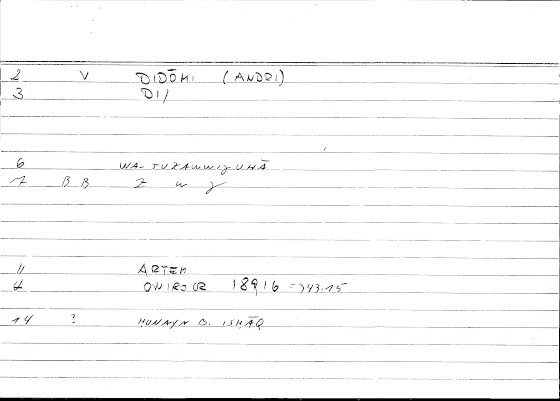 2 V DIDŌMI (ANDRI)
3 DI/
6 WA-TUZAWWIǦUHĀ
7 BB Z w ǧ
11 ARTEM
4 ONIROCR 189,16 => 43.15
14 ? HUNAYN B. ISḤĀQ